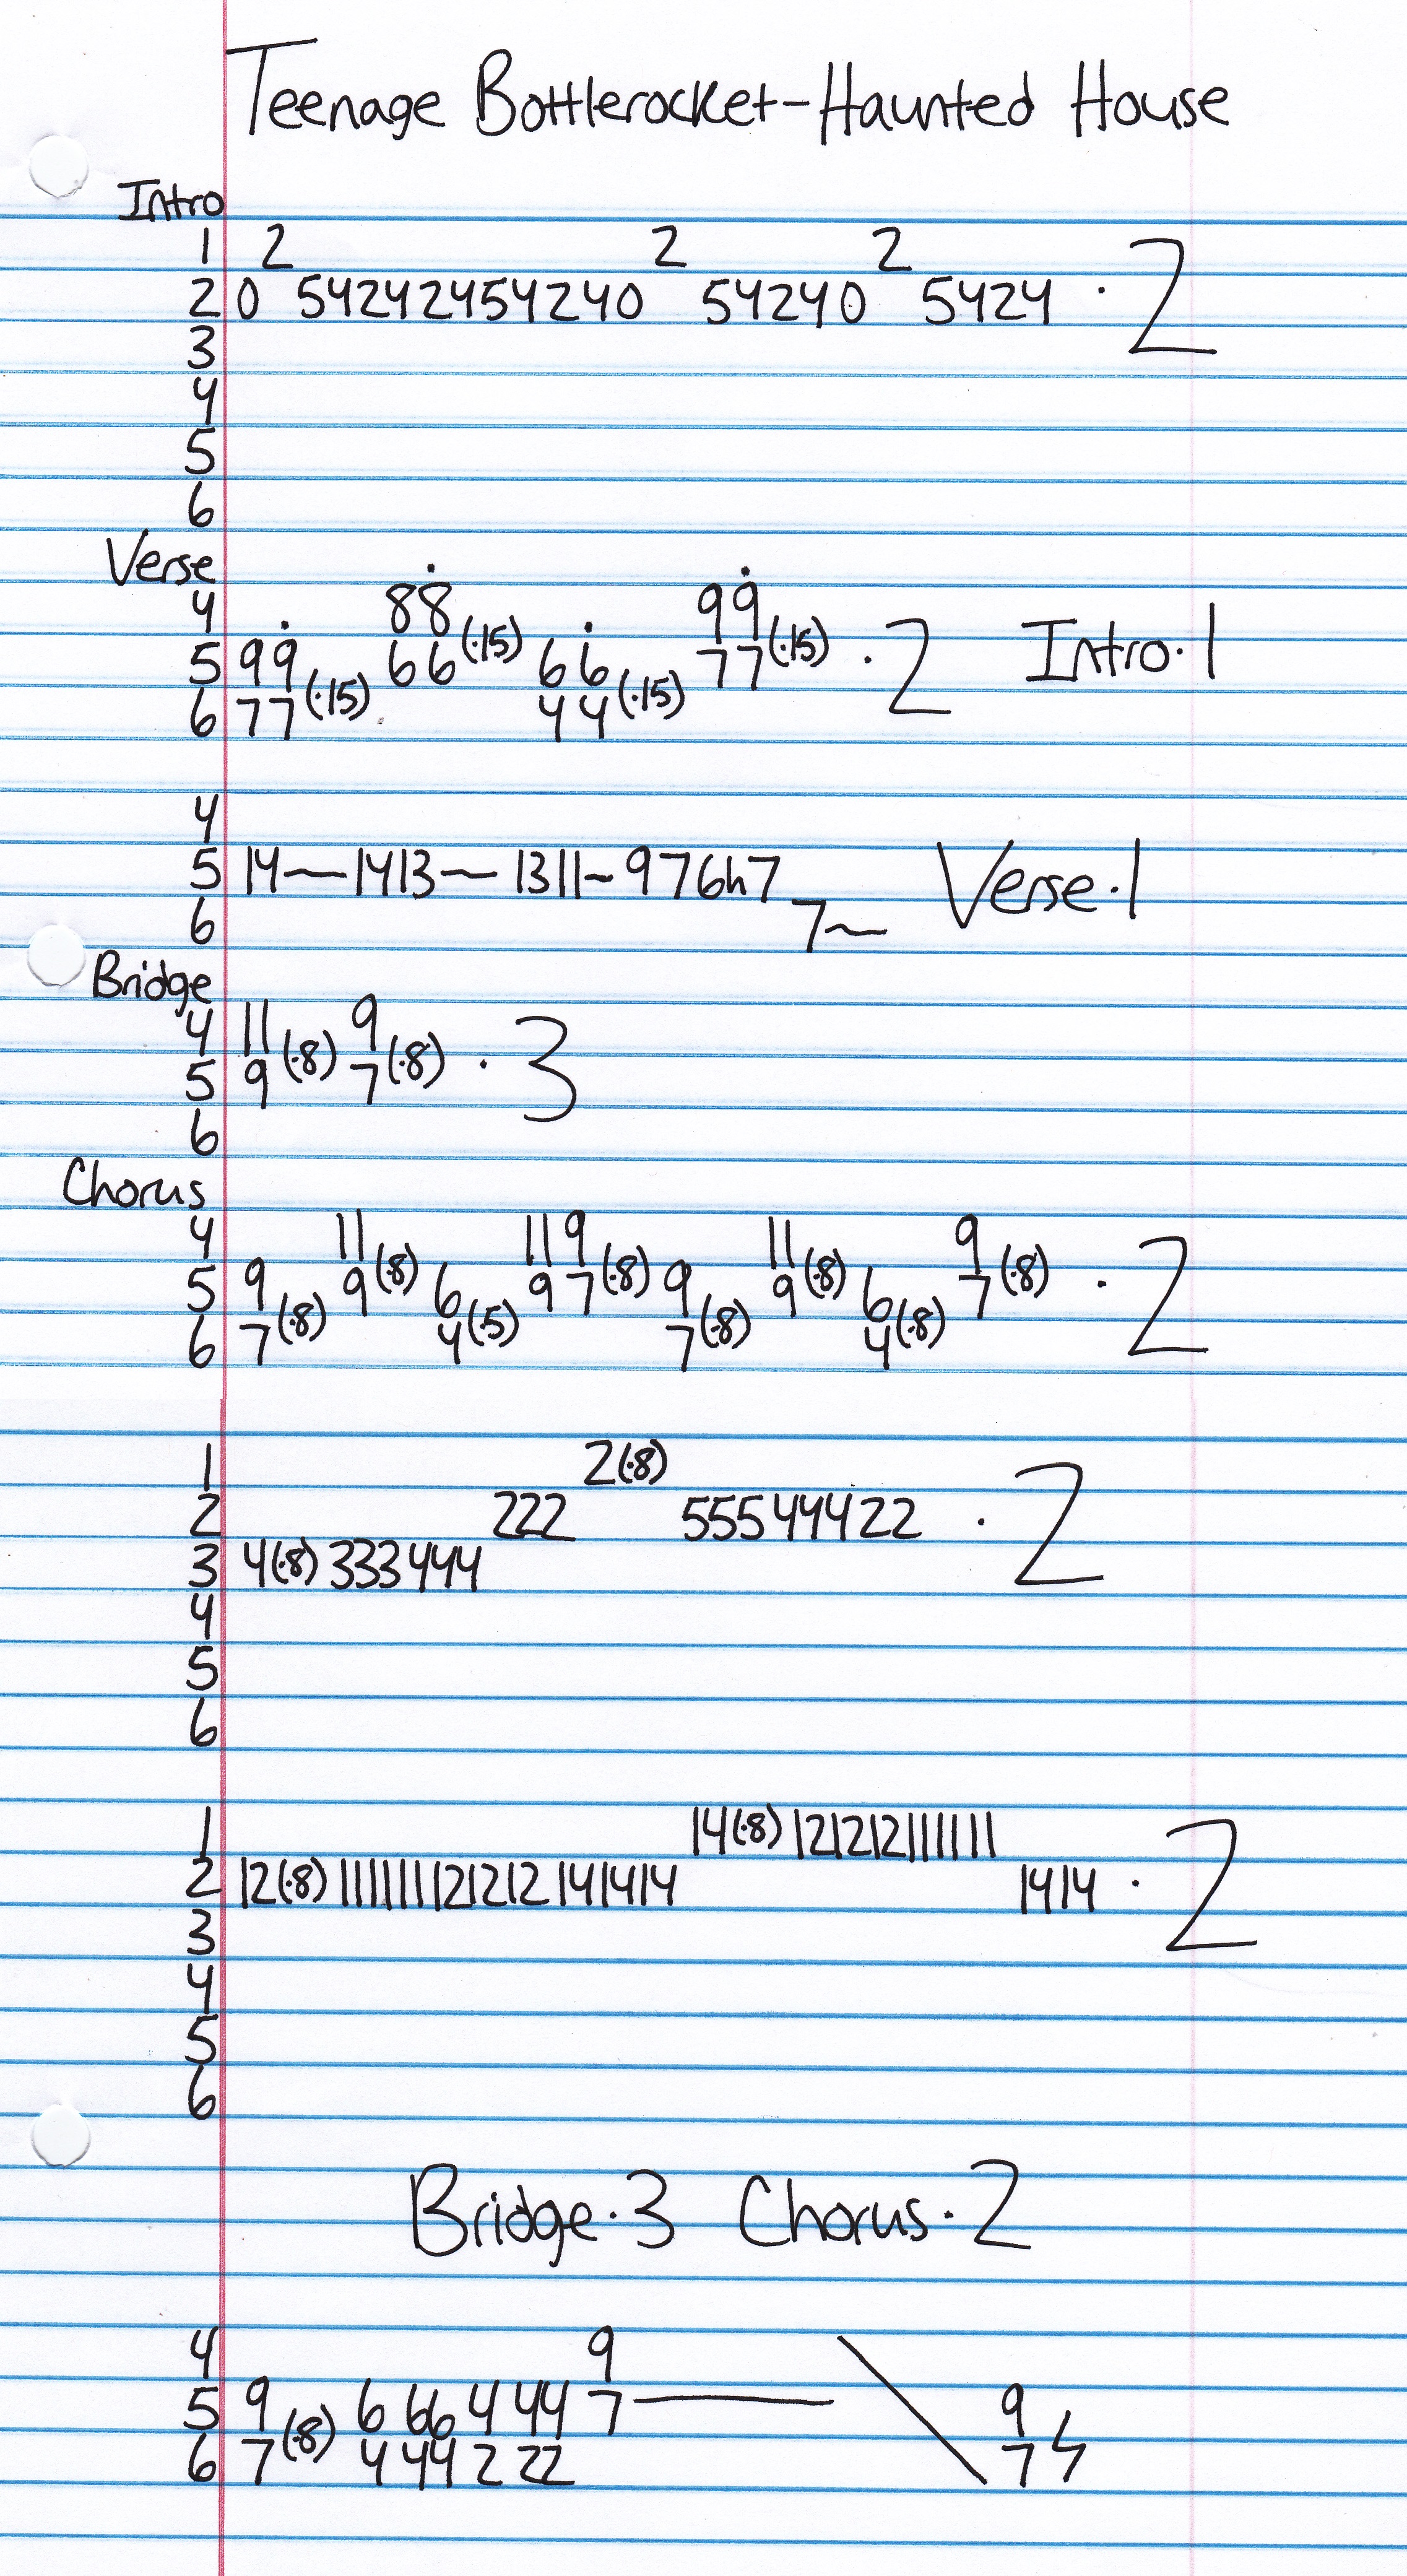 Teenage Bottlerocket-Haunted House
Intro
1 2 2 2
2 0 54242454240 54240 5424 · 2
3
4
5
6
Verse
4 88 99
5 99 66 (·15) 66 77 (·15) · 2 Intro·1
6 77 (·15) 44 (·15)
4
5 14~1413~1311~976h7 Verse·1
6 7~
Bridge
4 11 9
5 9 (·8) 7 (·8) · 3
6
Chorus
4 11 11 9 11 9
5 9 9 (·8) 6 9 7 (·8) 9 9 (·8) 6 7 (·8) · 2
6 7 (·8) 4 (5) 7 (·8) 4 (·8)
1 2(·8)
2 222 55544422 · 2
3 4(·8) 333444
4
5
6
1 14(·8) 121212111111
2 12(·8) 111111121212141414 1414 · 2
3
4
5
6
Bridge·3 Chorus·2
4 9
5 9 6 66 4 44 7 9
6 7 (·8) 4 44 2 22 7